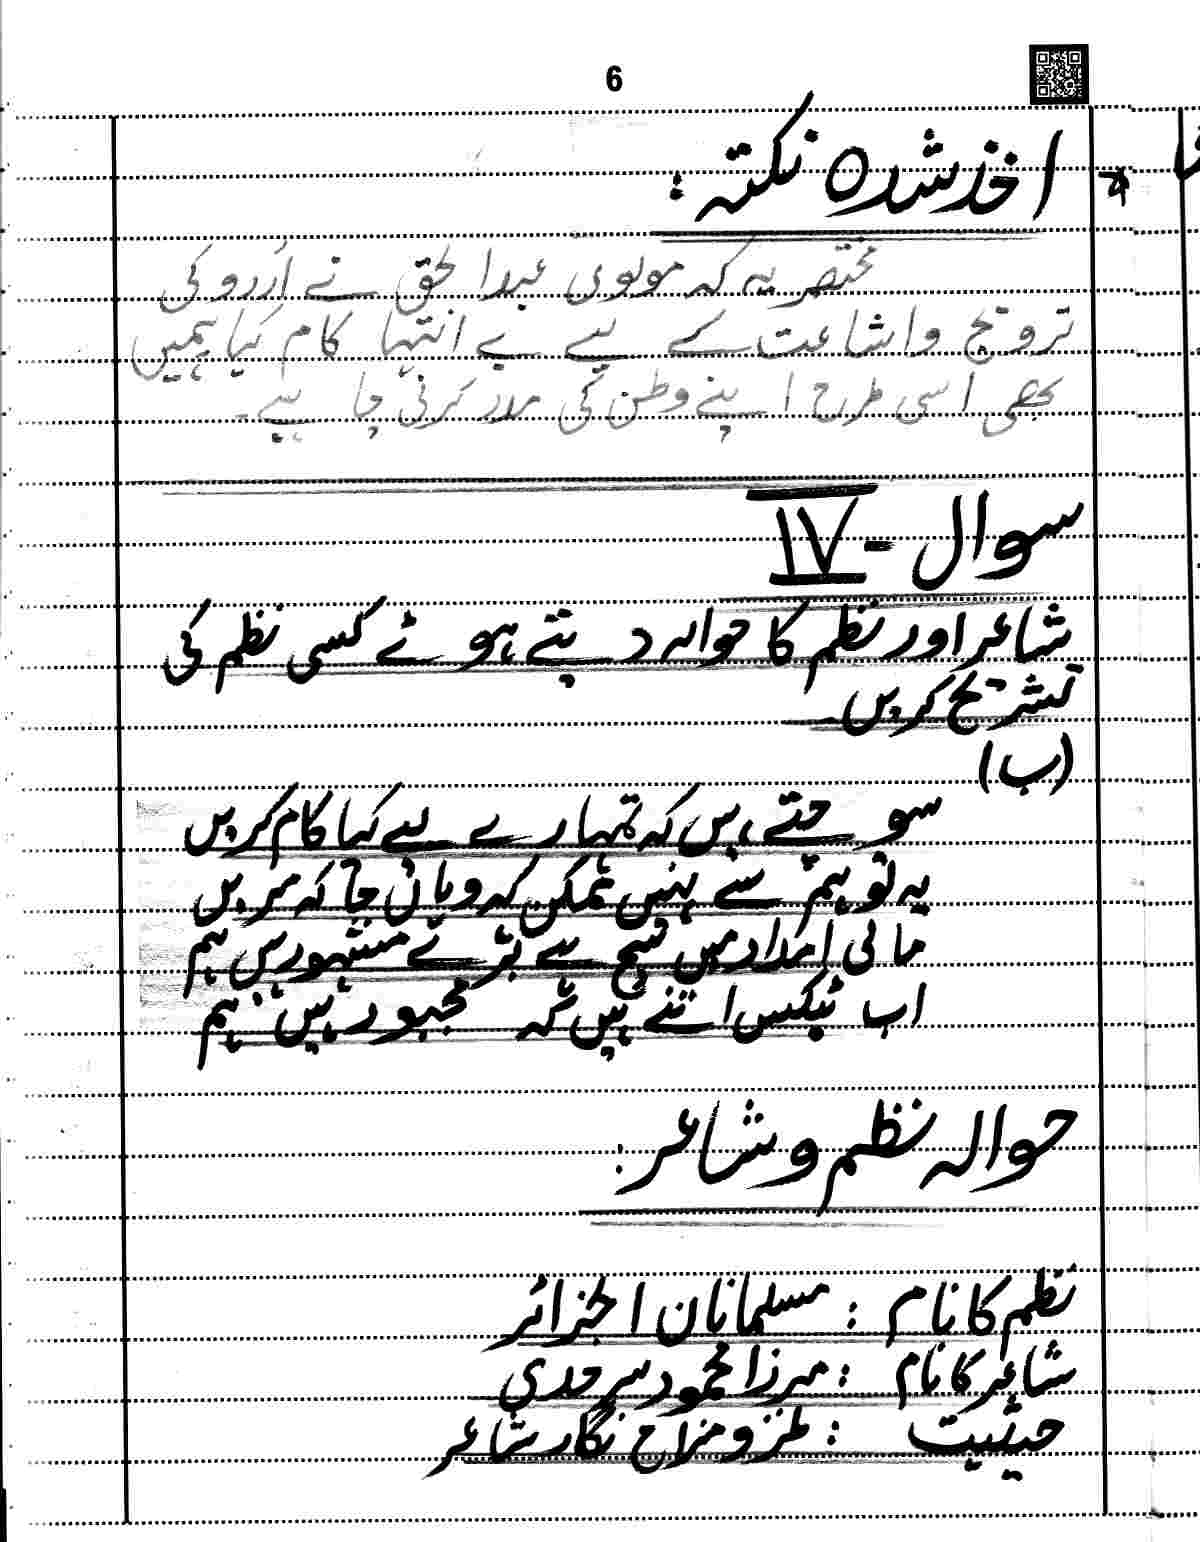 6
* اخذ شدہ نکتہ :
مختصر یہ کہ مولوی عبدالحق نے اُردو کی
ترویج و اشاعت کے لیے بے انتہا کام کیا ہمیں
بھی اسی طرح اپنے وطن کی مدد کرنی چاہیے۔
سوال - IV
شاعر اور نظم کا حوالہ دیتے ہوئے کسی نظم کی
تشریح کریں۔
(ب)
سوچتے ہیں کہ تمہارے لیے کیا کام کریں
یہ تو ہم سے نہیں ممکن کہ وہاں جا کہ مریں
مالی امداد میں سچ ہے بڑے مشہور ہیں ہم
اب ٹیکس اتنے ہیں کہ مجبور ہیں ہم
حوالہ نظم و شاعر :
نظم کا نام : مسلمانان الجزائر
شاعر کا نام : مرزا محمود سرحدی
حیثیت : طنز و مزاح نگار شاعر